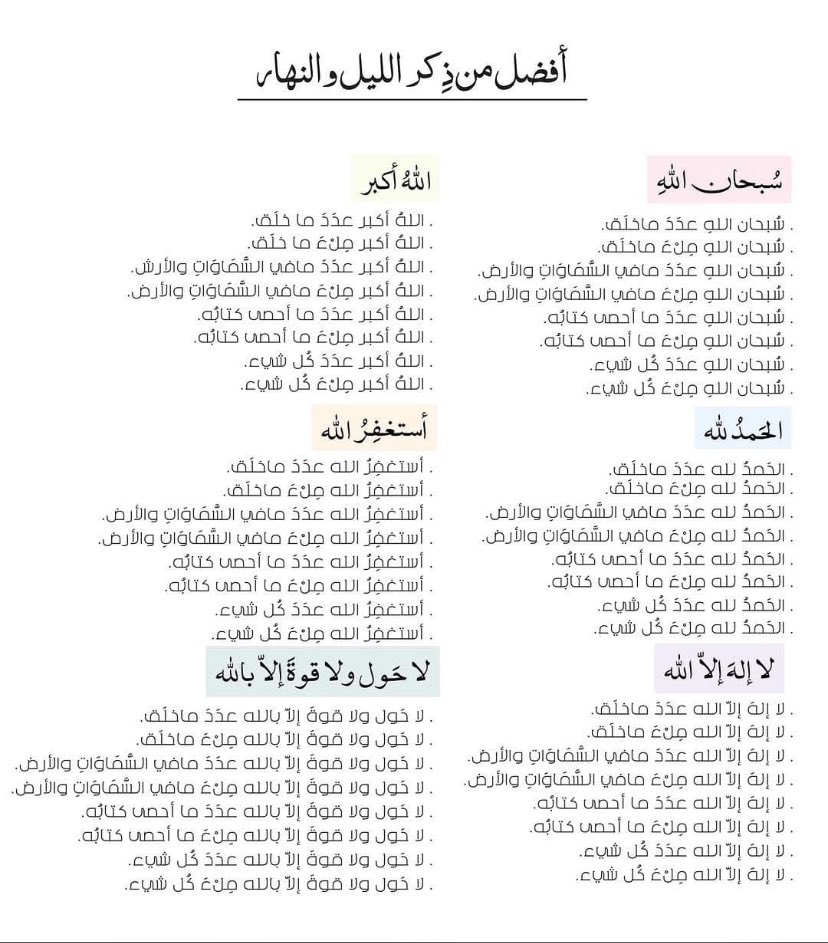 أفضل من ذِكر الليل والنهار
سُبحان اللهِ
. سُبحان اللهِ عدَدَ ماخلَق.
. سُبحان اللهِ مِلْءَ ماخلَق.
. سُبحان اللهِ عدَدَ مافي السَّمَاوَاتِ والأرض.
. سُبحان اللهِ مِلْءَ مافي السَّمَاوَاتِ والأرض.
. سُبحان اللهِ عدَدَ ما أحصى كتابُه.
. سُبحان اللهِ مِلْءَ ما أحصى كتابُه.
. سُبحان اللهِ عدَدَ كُل شيء.
. سُبحان اللهِ مِلْءَ كُل شيء.
الحَمدُ لله
. الحَمدُ لله عدَدَ ماخلَق.
. الحَمدُ لله مِلْءَ ماخلَق.
. الحَمدُ لله عدَدَ مافي السَّمَاوَاتِ والأرض.
. الحَمدُ لله مِلْءَ مافي السَّمَاوَاتِ والأرض.
. الحَمدُ لله عدَدَ ما أحصى كتابُه.
. الحَمدُ لله مِلْءَ ما أحصى كتابُه.
. الحَمدُ لله عدَدَ كُل شيء.
. الحَمدُ لله مِلْءَ كُل شيء.
لا إلهَ إلاّ الله
. لا إلهَ إلاّ الله عدَدَ ماخلَق.
. لا إلهَ إلاّ الله مِلْءَ ماخلَق.
. لا إلهَ إلاّ الله عدَدَ مافي السَّمَاوَاتِ والأرض.
. لا إلهَ إلاّ الله مِلْءَ مافي السَّمَاوَاتِ والأرض.
. لا إلهَ إلاّ الله عدَدَ ما أحصى كتابُه.
. لا إلهَ إلاّ الله مِلْءَ ما أحصى كتابُه.
. لا إلهَ إلاّ الله عدَدَ كُل شيء.
. لا إلهَ إلاّ الله مِلْءَ كُل شيء.
اللهُ أكبر
. اللهُ أكبر عدَدَ ما خلَق.
. اللهُ أكبر مِلْءَ ما خلَق.
. اللهُ أكبر عدَدَ مافي السَّمَاوَاتِ والأرش.
. اللهُ أكبر مِلْءَ مافي السَّمَاوَاتِ والأرض.
. اللهُ أكبر عدَدَ ما أحصى كتابُه.
. اللهُ أكبر مِلْءَ ما أحصى كتابُه.
. اللهُ أكبر عدَدَ كُل شيء.
. اللهُ أكبر مِلْءَ كُل شيء.
أستغفِرُ الله
. أستغفِرُ الله عدَدَ ماخلَق.
. أستغفِرُ الله مِلْءَ ماخلَق.
. أستغفِرُ الله عدَدَ مافي السَّمَاوَاتِ والأرض.
. أستغفِرُ الله مِلْءَ مافي السَّمَاوَاتِ والأرض.
. أستغفِرُ الله عدَدَ ما أحصى كتابُه.
. أستغفِرُ الله مِلْءَ ما أحصى كتابُه.
. أستغفِرُ الله عدَدَ كُل شيء.
. أستغفِرُ الله مِلْءَ كُل شيء.
لا حَول ولا قوةَ إلاّ بالله
. لا حَول ولا قوةَ إلاّ بالله عدَدَ ماخلَق.
. لا حَول ولا قوةَ إلاّ بالله مِلْءَ ماخلَق.
. لا حَول ولا قوةَ إلاّ بالله عدَدَ مافي السَّمَاوَاتِ والأرض.
. لا حَول ولا قوةَ إلاّ بالله مِلْءَ مافي السَّمَاوَاتِ والأرض.
. لا حَول ولا قوةَ إلاّ بالله عدَدَ ما أحصى كتابُه.
. لا حَول ولا قوةَ إلاّ بالله مِلْءَ ما أحصى كتابُه.
. لا حَول ولا قوةَ إلاّ بالله عدَدَ كُل شيء.
. لا حَول ولا قوةَ إلاّ بالله مِلْءَ كُل شيء.